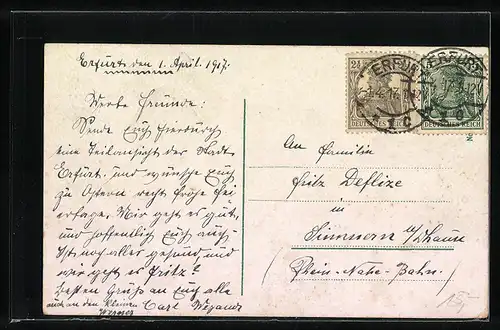 Erfurt den 1. April. 1917.
Werte Freunde:
Sende Euch hierdurch
eine Teilansicht der Stadt
Erfurt. und wünsche Euch
zu Ostern recht frohe Fei
ertage. Mir geht es gut,
und hoffentlich Euch auch.
Ist noch alles gesund, und
wie geht es Fritz?
Besten Gruß an Euch alle
auch an den kleinen
Werner
Carl
An Familie
Fritz Deflize
in
Simmern a/Dhaun
(Rhein-Nahe-Bahn.)
ERFURT
1.4.17
1 c
2½
DEUTSCHES REICH
ERFURT
DEUTSCHES REICH